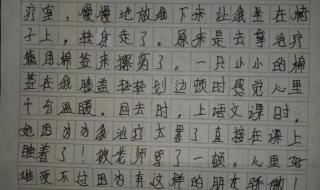 疗室，慢慢地放我下来让我坐在椅
子上，转身走了。原来是去拿治疗
箱用棉签来擦药了。一只小小的棉
签在我膝盖轻轻划边顿时感觉心里
十分温暖。回去时，上语文课时，
她因为为我治疗太累了直接在课上
睡着了！被老师骂了一顿。心里好
难受不过因为有这样的朋友骄傲！